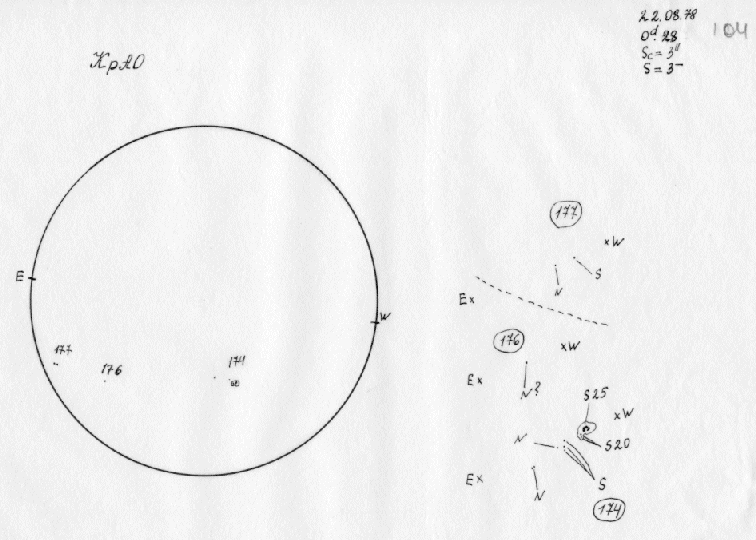 22.08.78
104
0d.28
Sc = 3"
S = 3-
КрАО
177
xW
S
N
Ex
E
W
176
xW
177
176
174
Ex
N?
S25
xW
N
S20
Ex
N
S
174